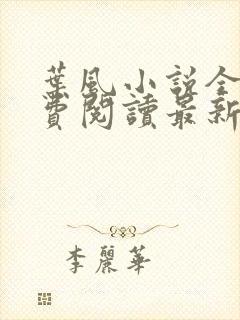 葉風小說全
費閱讀最新
李麗華